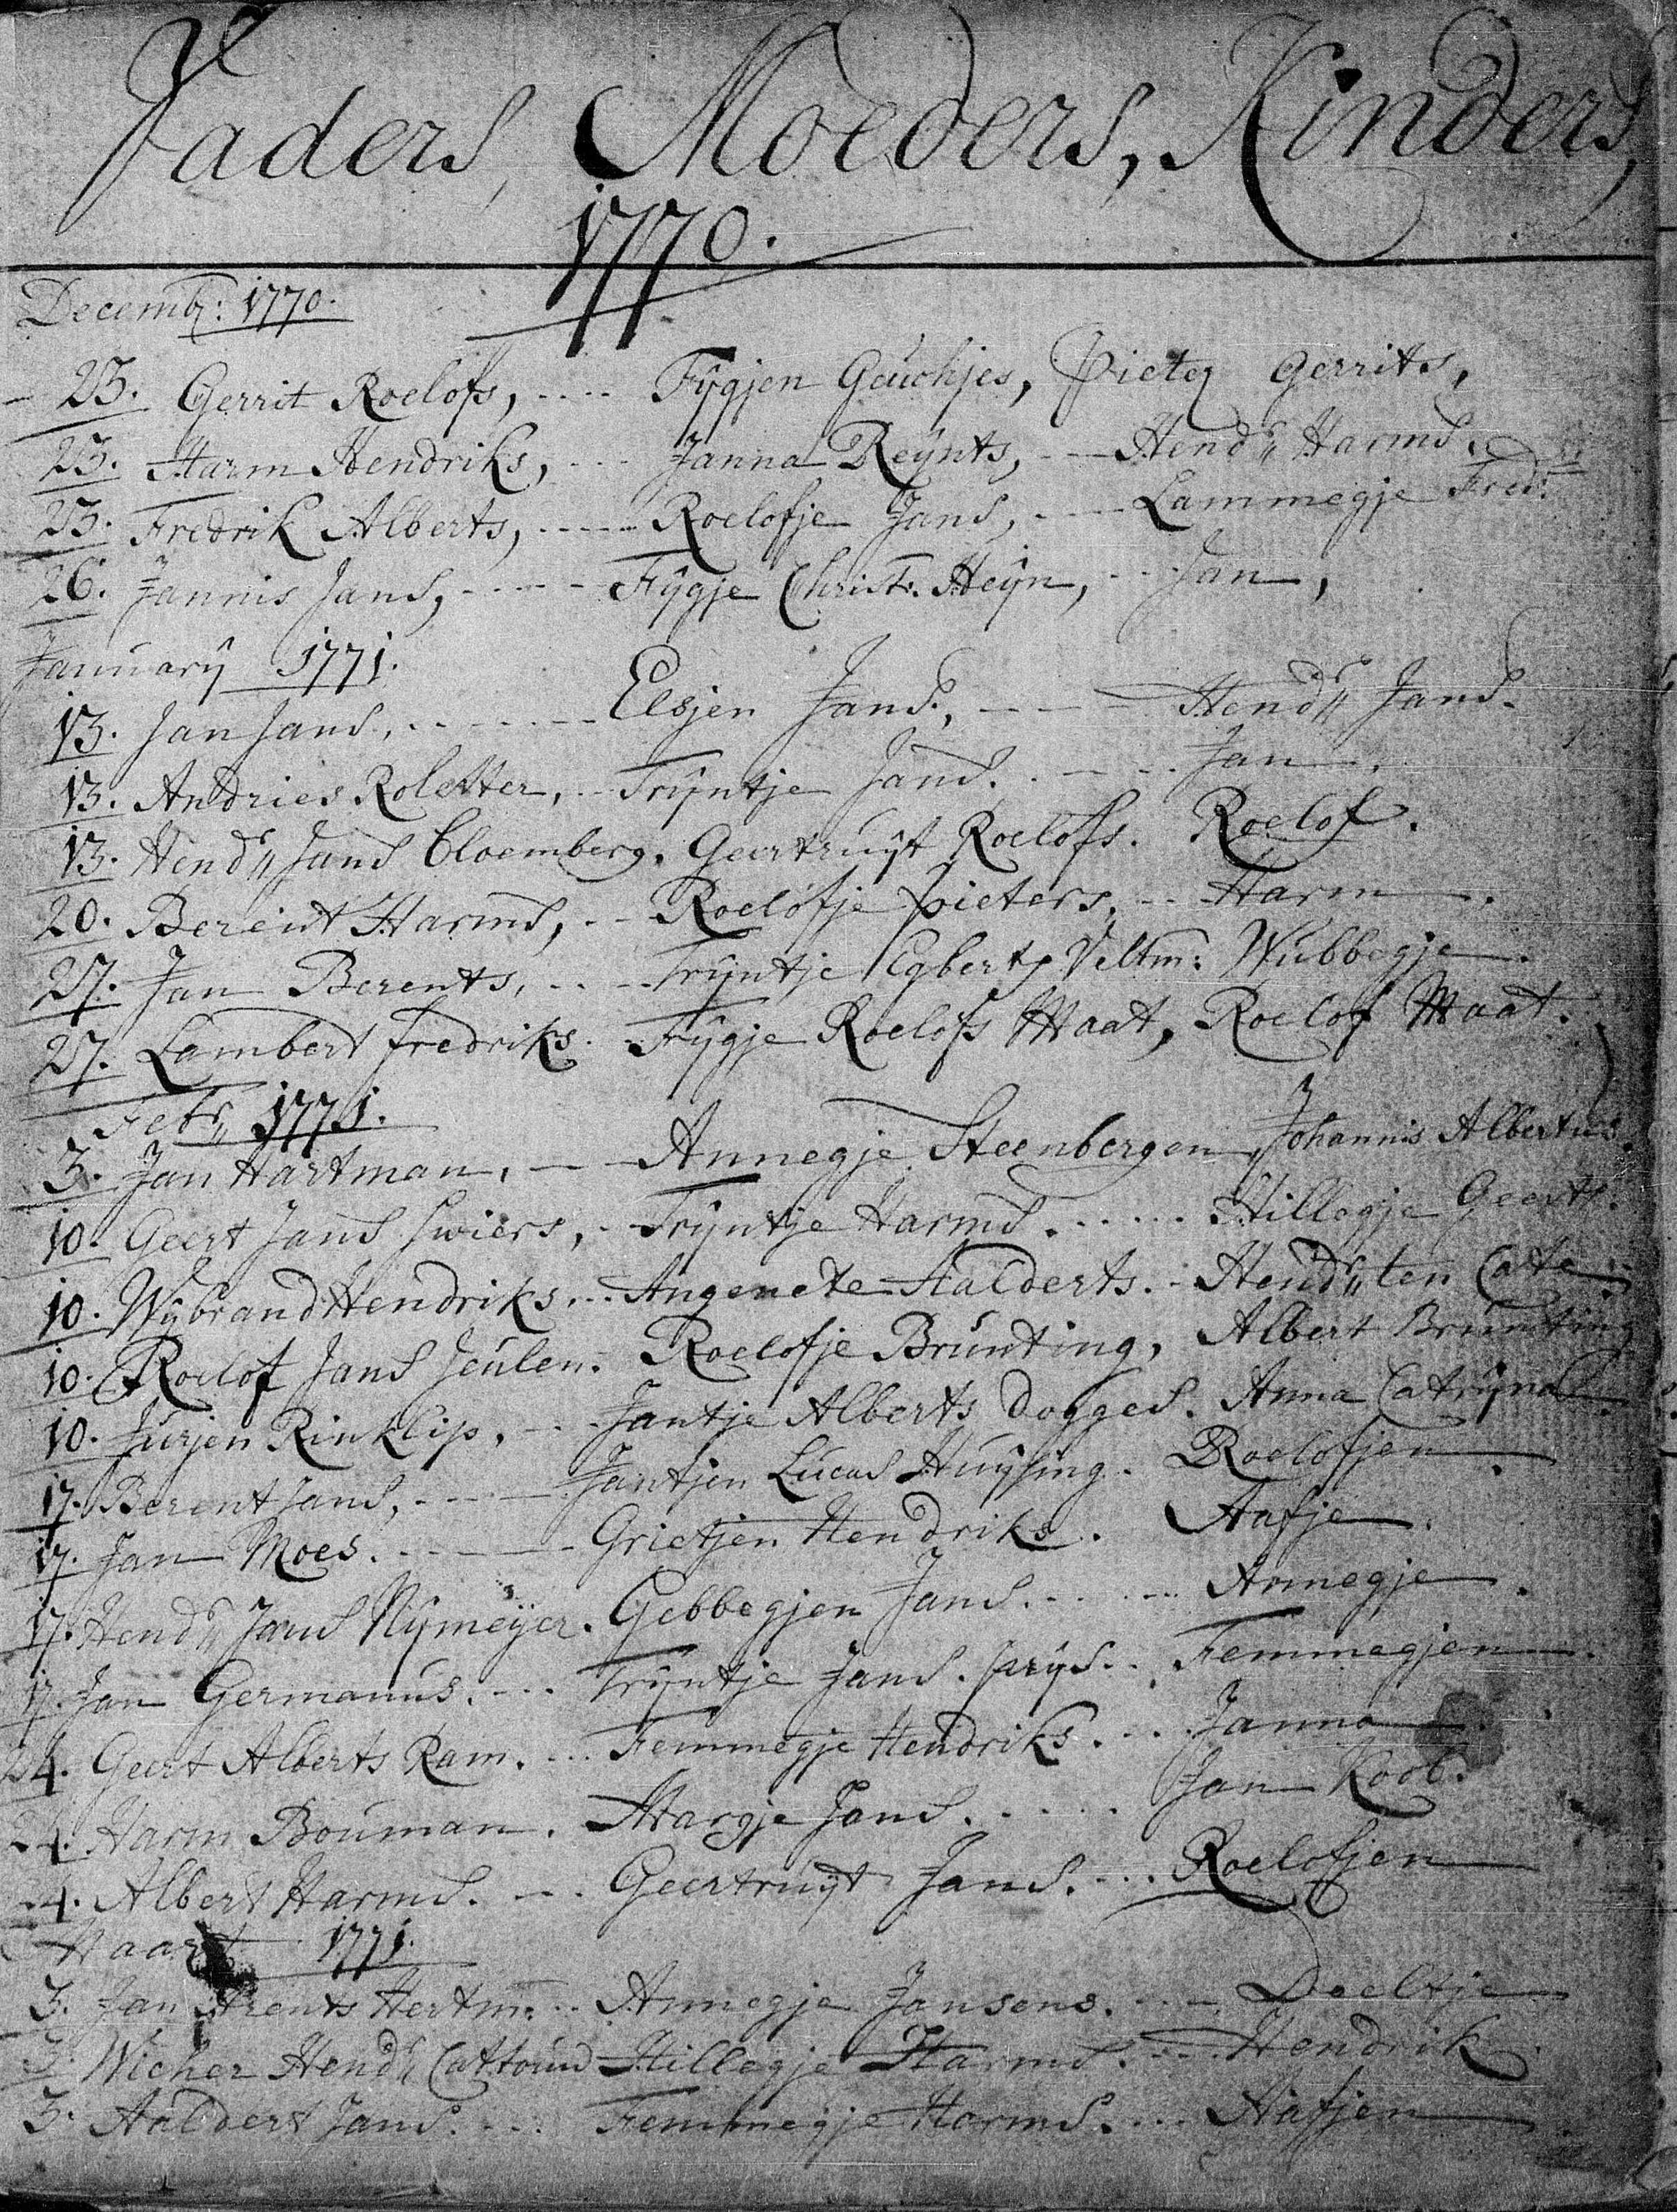 Vaders, Moeders, Kinders,
1770.
Decemb: 1770.
23. Gerrit Roelofs, .... Fÿgjen Geuchjes, Pieter Gerrits,
23. Harm Hendriks, ... Janna Reÿnts, -- Hendr Harms.
23. Fredrik Alberts, ---- Roelofje Jans, --- Lammegje Fred:
26. Jannis Jans, ---- Fÿgje Christ: Heÿn, -- Jan,
Januarÿ 1771.
13. Jan Jans, ------ Elsjen Jans., --- Hendr Jans.
13. Andries Roletter, .. Trÿntje Jans. . -- . Jan.
13. Hendr Jans Bloemberg. Geertruÿt Roelofs. Roelof.
20. Berent Harms, -- Roelofje Pieters, -- Harm.
27. Jan Berents, ... Trÿntje Egberts Veltm: Wubbegje.
27. Lambert fredriks. Fÿgje Roelofs Maat, Roelof Maat.
Febr 1771.
3. Jan Hartman, -- Annegje Steenbergen, Johannis Albertus.
10. Geert Jans Swiers, . Trÿntje Harms. ...... Hillegje Geerts.
10. Wÿbrand Hendriks... Angenete Aalderts. - Hendr ten Cate.
10. Roelof Jans Seulen. Roelofje Brunting, Albert Brunting
10. Jurjen Rinklip, -. Jantje Alberts Dogges. Anna Catrÿna.
17. Berent Jans, ---- Jantjen Lucas Huÿsing. Roelofjen.
17. Jan Moes. ---- Grietjen Hendriks. Aafje.
17. Hendr Jans Nÿmeÿer. Gebbegjen Jans. ..... Annegje.
17. Jan Germanus. --- Trÿntje Jans. prÿs. . Femmegjen.
24. Geert Alberts Ram. ... Femmegje Hendriks. .. Janna.
24. Harm Bouman. Margje Jans. ..... Jan Kool.
24. Albert Harms. -.. Geertruÿt Jans. ... Roelofjen
Maart 1771.
3. Jan Arents Hertm: .. Annegje Jansens. -- Doeltje
3. Wicher Hendr Cattouw Hillegje Harms. ... Hendrik
3. Aaldert Jans. ... Femmegje Harms. ... Aafjen